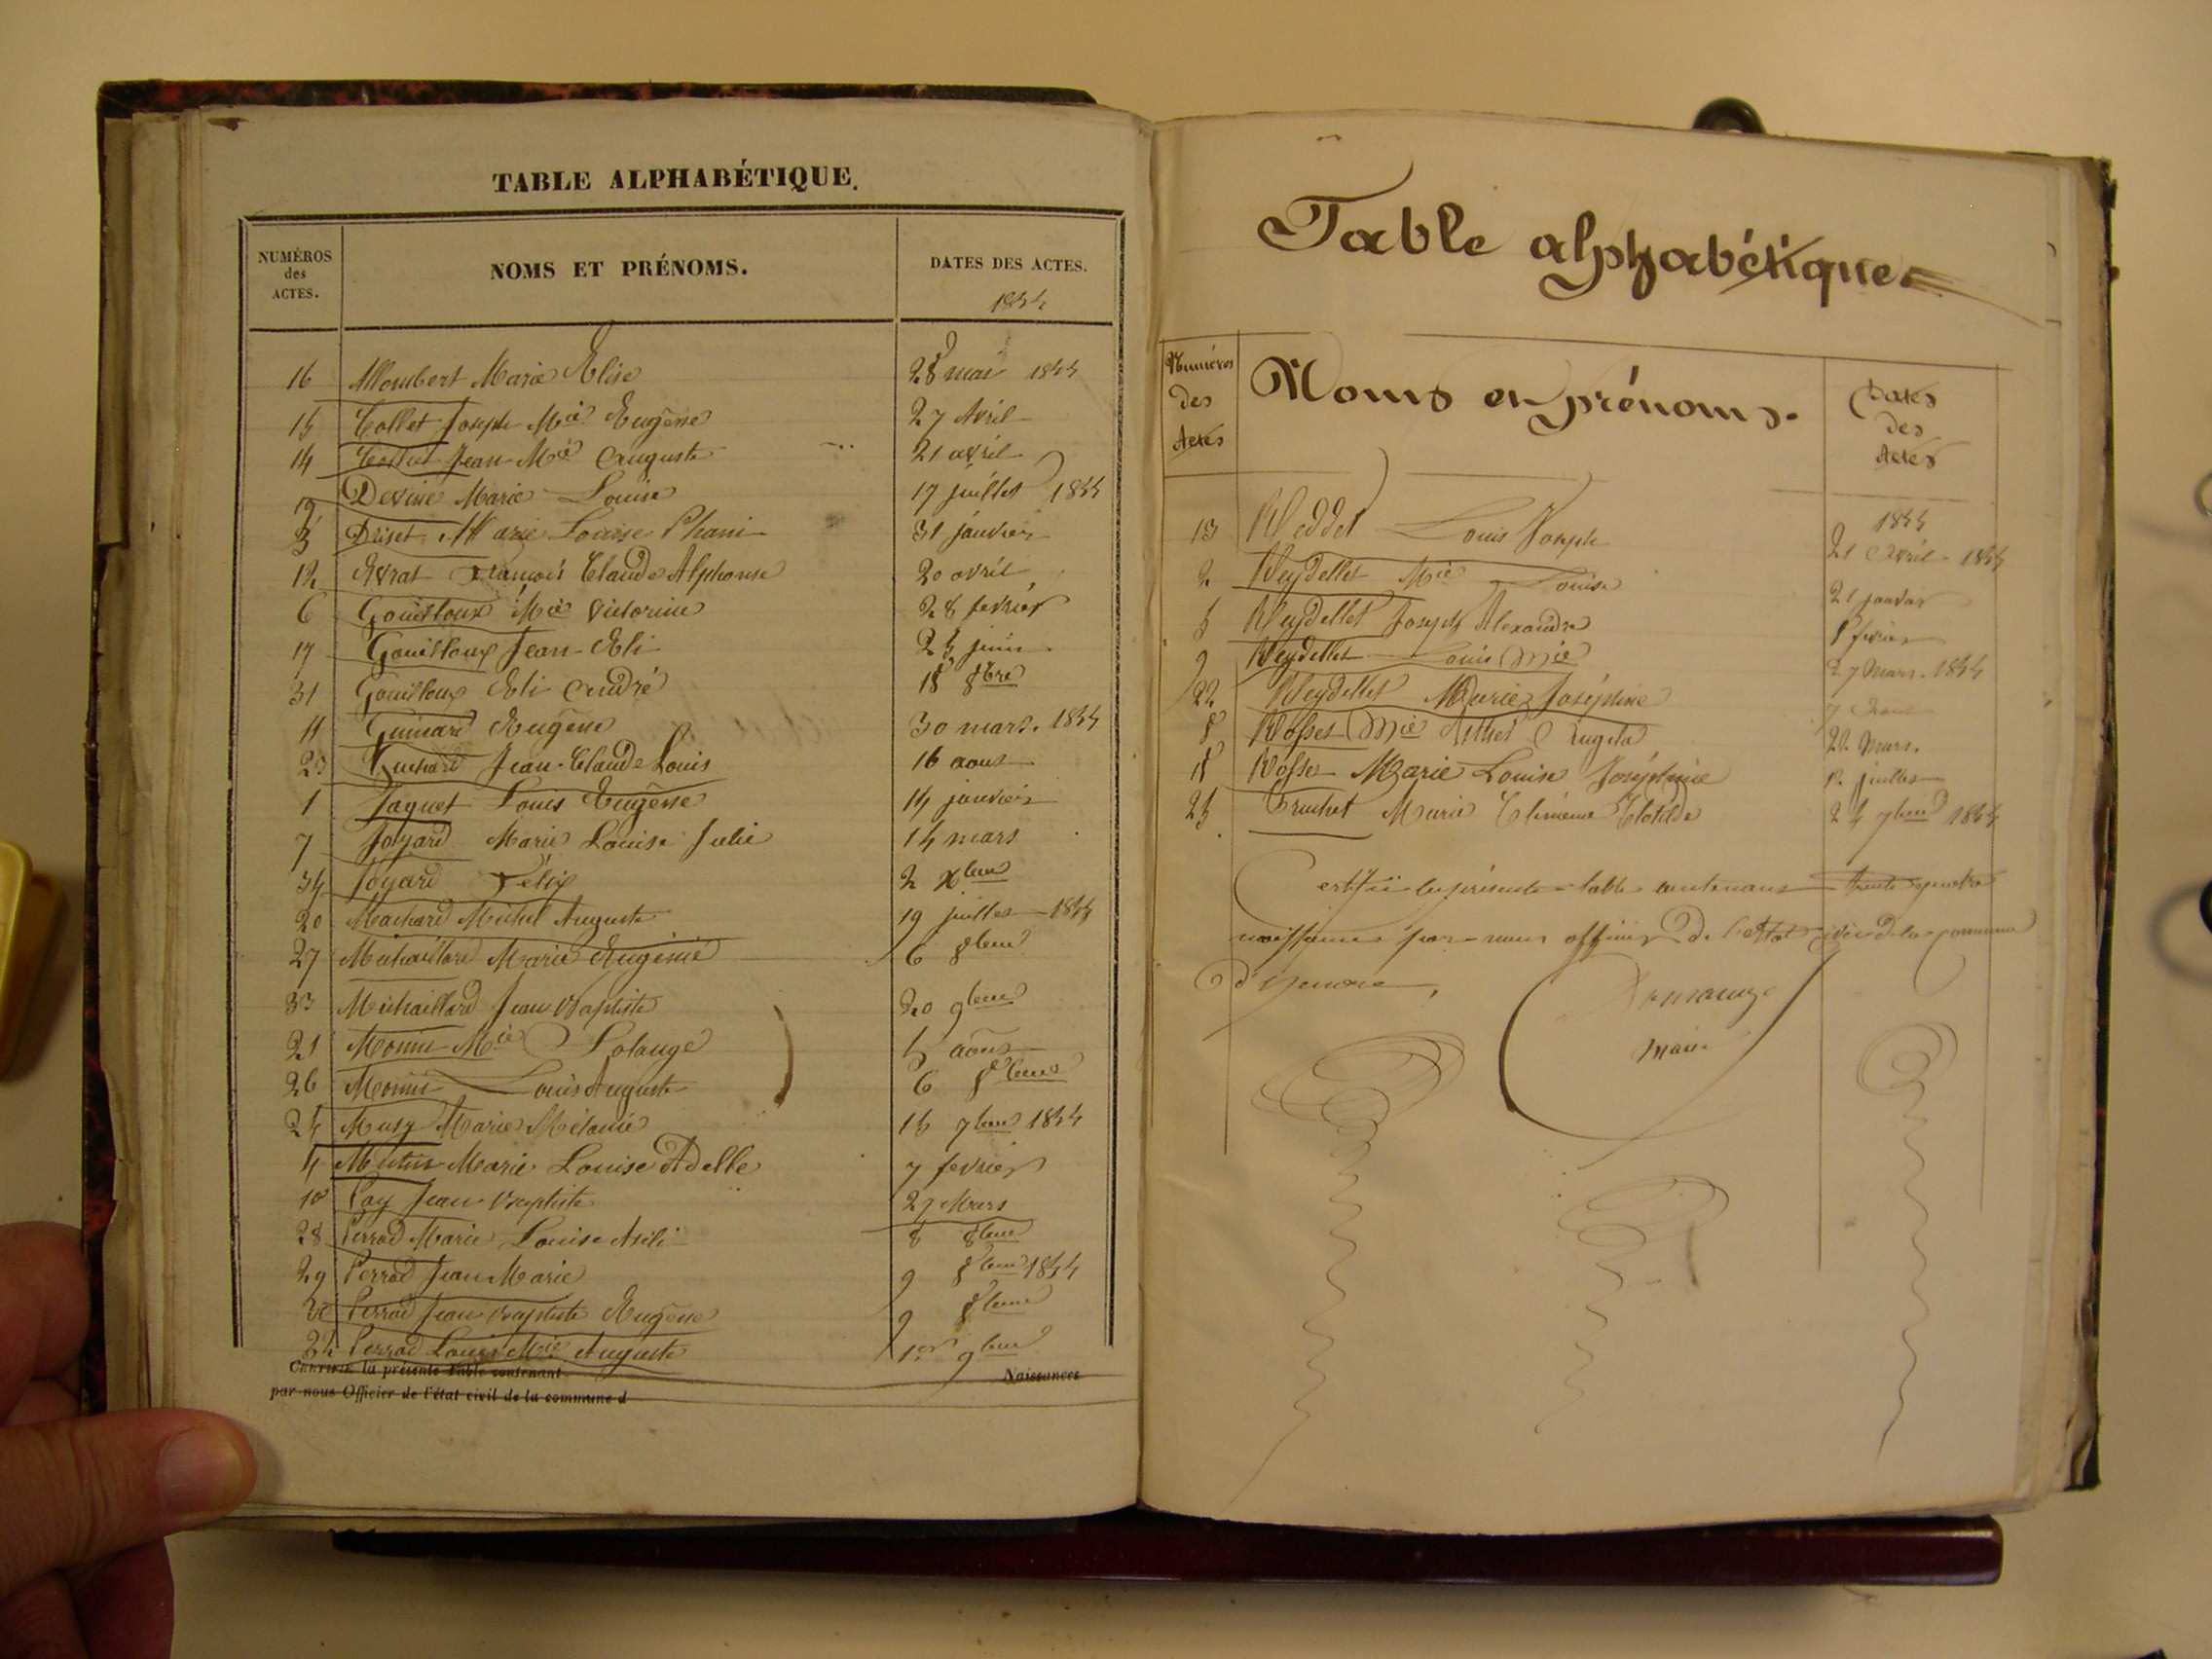 TABLE ALPHABÉTIQUE.
NUMÉROS des ACTES.
NOMS ET PRÉNOMS.
DATES DES ACTES.
16 Allombert Marie Elise 28 mai
15 Collet Joseph Mie Eugène 27 Avril
14 Jean Mie Auguste 21 avril
19 Devine Marie Louise 17 juillet
3 Driset Marie Louise 31 janvier
12 Evrat François Claude Alphonse 20 avril
6 Gouilloux Mie Victorine 28 fevrier
17 Gouilloux Jean Eli juin
31 Gouilloux Eli André 18 8bre
11 Guinard Eugène 30 mars.
23 Jean Claude Louis 16 aout
1 Jaquet Louis Eugène 14 janvier
7 Joyard Marie Louise Julie 14 mars
34 Joyard Félix 2 Xbre
20 Machard Michel Auguste 19 juillet
27 Michaillard Marie Eugénie 6 8bre
33 Michaillard Jean Baptiste 20 9bre
21 Monin Mie Solange août
26 Monin Louis Auguste 6 8bre
24 Musy Marie Mélanie 7bre
4 Marie Louise Adelle 7 fevrier
10 Pay Jean Baptiste 27 Mars
28 Perrod Marie Louise 8 8bre
29 Perrod Jean Marie 9 8bre
30 Perrod Jean Baptiste Eugène 9 8bre
Perrod Louis Mie Auguste 1er 9bre
CERTIFIÉ la présente Table contenant Naissances
par nous Officier de l'état civil de la commune d
Table alphabétique
Numéros des Actes
Noms et prénoms.
Dates des Actes
13 Reddet Louis Joseph 21 Avril
2 Reydellet Mie Louise 21 janvier
5 Reydellet Joseph Alexandre fevrier
9 Reydellet Louis Mie 27 Mars.
22 Reydellet Marie Joséphine 7
8 Rosset Mie Angela Mars.
18 Rosset Marie Louise Joséphine juillet
25 Truchet Marie Clotilde 7bre
Certifié la présente table contenant trente quatre
naissances par nous officier de l'état civil de la commune
maire